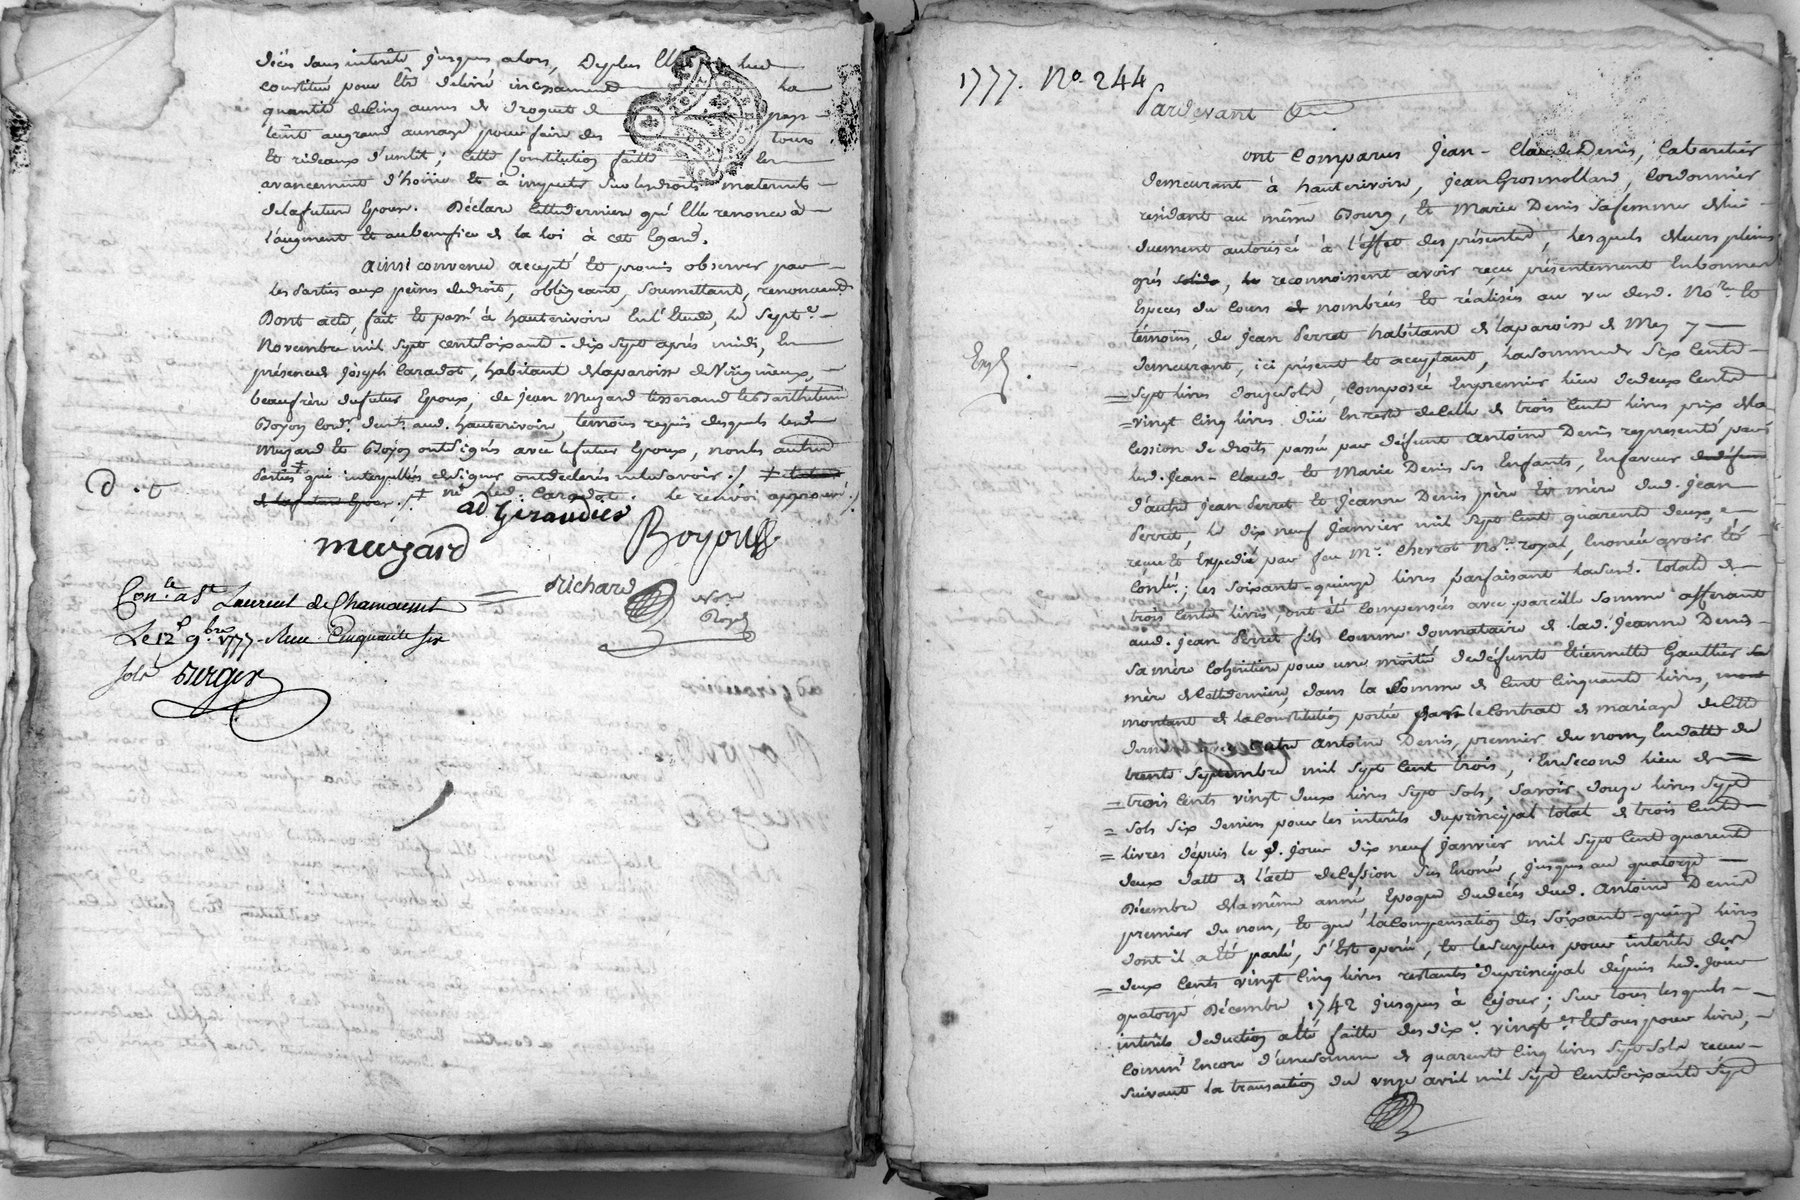 décès sans interêts jusques alors, Deplus Elle led
constitue pour Etre delivré incessament la
quantité decinq aunes de droguet de pays
teint augrand aunage pour faire des tours
Et rideaux d'unlit; cette Constitution faitte En
avancement d'hoirie Et à imputer Sur lesdroits maternels
delafuture Epouse. Déclare Cettederniere qu'Elle renonce à
l'augment Et aubenefice de la loi à cet Egard.
Ainsi convenu accepté Et promis observer par
les parties aux peines dedroit, obligeant, Soumettant, renonceant
Dont acte, fait Et passé à hauterivoire En l'Etude, le Sept.e
Novembre mil Sept centsoixante-dix sept après midi, En
présencede joseph Caradot, habitant delaparoisse deVirigneux,
beaufrère dufutur Epoux, de jean Muzard tisserand Et Barthelemi
Boyon Cord.r dem.t aud. hauterivoire, temoins requis desquels led.
Muzard Et Boyon ontsignés avec lefutur Epoux, nonles autres
parties qui interpellées designer ontdeclarés nelesavoir ./.
ni led. Caradot. le renvoi approuvé ./.
d . t
ad Giraudier
Muzard
Boyon
Richard
No.re
Royal
Con.lé a St Laurent de Chamousset
Le 12 9.bre 1777. Reçu Cinquante six
sols Surger
1777. No. 244
Pardevant
ont Comparus Jean-ClaudeDenis, Cabaretier
demeurant à hauterivoire, jeanGrosmollard, Cordonnier
residant au même Bourg, Et Marie Denis Safemme delui
duement autorisée à l'effet des présentes, lesquels deleurs pleins
grés solid., le reconnoissent avoir reçu présentement Enbonnes
Especes du Cours de nombrées Et réalisées au vu desd. No.re Et
témoins, de Jean Perret habitant de laparoisse de Mey y
demeurant, ici présent Et acceptant, lasommede Six Cents
Exp.
Sept livres douzeSols, Composée Enpremier lieu dedeux Cents
vingt Cinq livres düe Enreste deCelle de trois Cents livres prix dela
Cession de droits passée par défunt Antoine Denis representé par
led. Jean-Claude Et Marie Denis Ses Enfants, Enfaveur dedéfun
d'autre Jean Perret Et Jeanne Denis père Et mère dud. Jean
Perret, le dix neuf Janvier mil Sept Cent quarente deux,
reçue Et Expediée par feu M.e Chervot No.re royal, Enoncée avoir Eté
Conlée; les Soixante-quinze livres parfaisant lasusd. totale de
trois Cents livres, ont été Compensés avec pareille Somme afférant
aud. Jean Perret fils Comme donnataire de lad. Jeanne Denis
Sa mère Cohéritière pour une moitié dedéfunte Etiennette Gaultier Sa
mère deCettederniere, dans la Somme de Cent Cinquante livres, mont
montant de laConstitution portée dans leContrat de mariage deCette
derniere avec autre Antoine Denis, premier du nom, Endatte du
trente Septembre mil Sept Cent trois, EnSecond lieu de
trois Cents vingt deux livres Sept Sols, Savoir douze livres Sept
Sols Six deniers pour les intérêts duprincipal total de trois Cents
livres dépuis le d. jour dix neuf Janvier mil Sept Cent quarente
deux datte de l'acte deCession Sus Enoncé, jusques au quatorze
Décembre delamême année Epoque dudecès dud. Antoine Denis
premier du nom, Et que laCompensation des Soixante-quinze livres
dont il a Eté parlé, s'Est operée, Et leSurplus pour interêts des
deux Cents vingt Cinq livres restantes duprincipal dépuis led. Jour
quatorze Décembre 1742 jusques à Cejour; Sur tous lesquels
interêts deduction aété faitte des dix.e vingt.es Et Sous pour livre,
Comm' Encore d'uneSomme de quarente Cinq livres Sept Sols recue
Suivant la transaction du onze avril mil Sept CentSoixante Sept